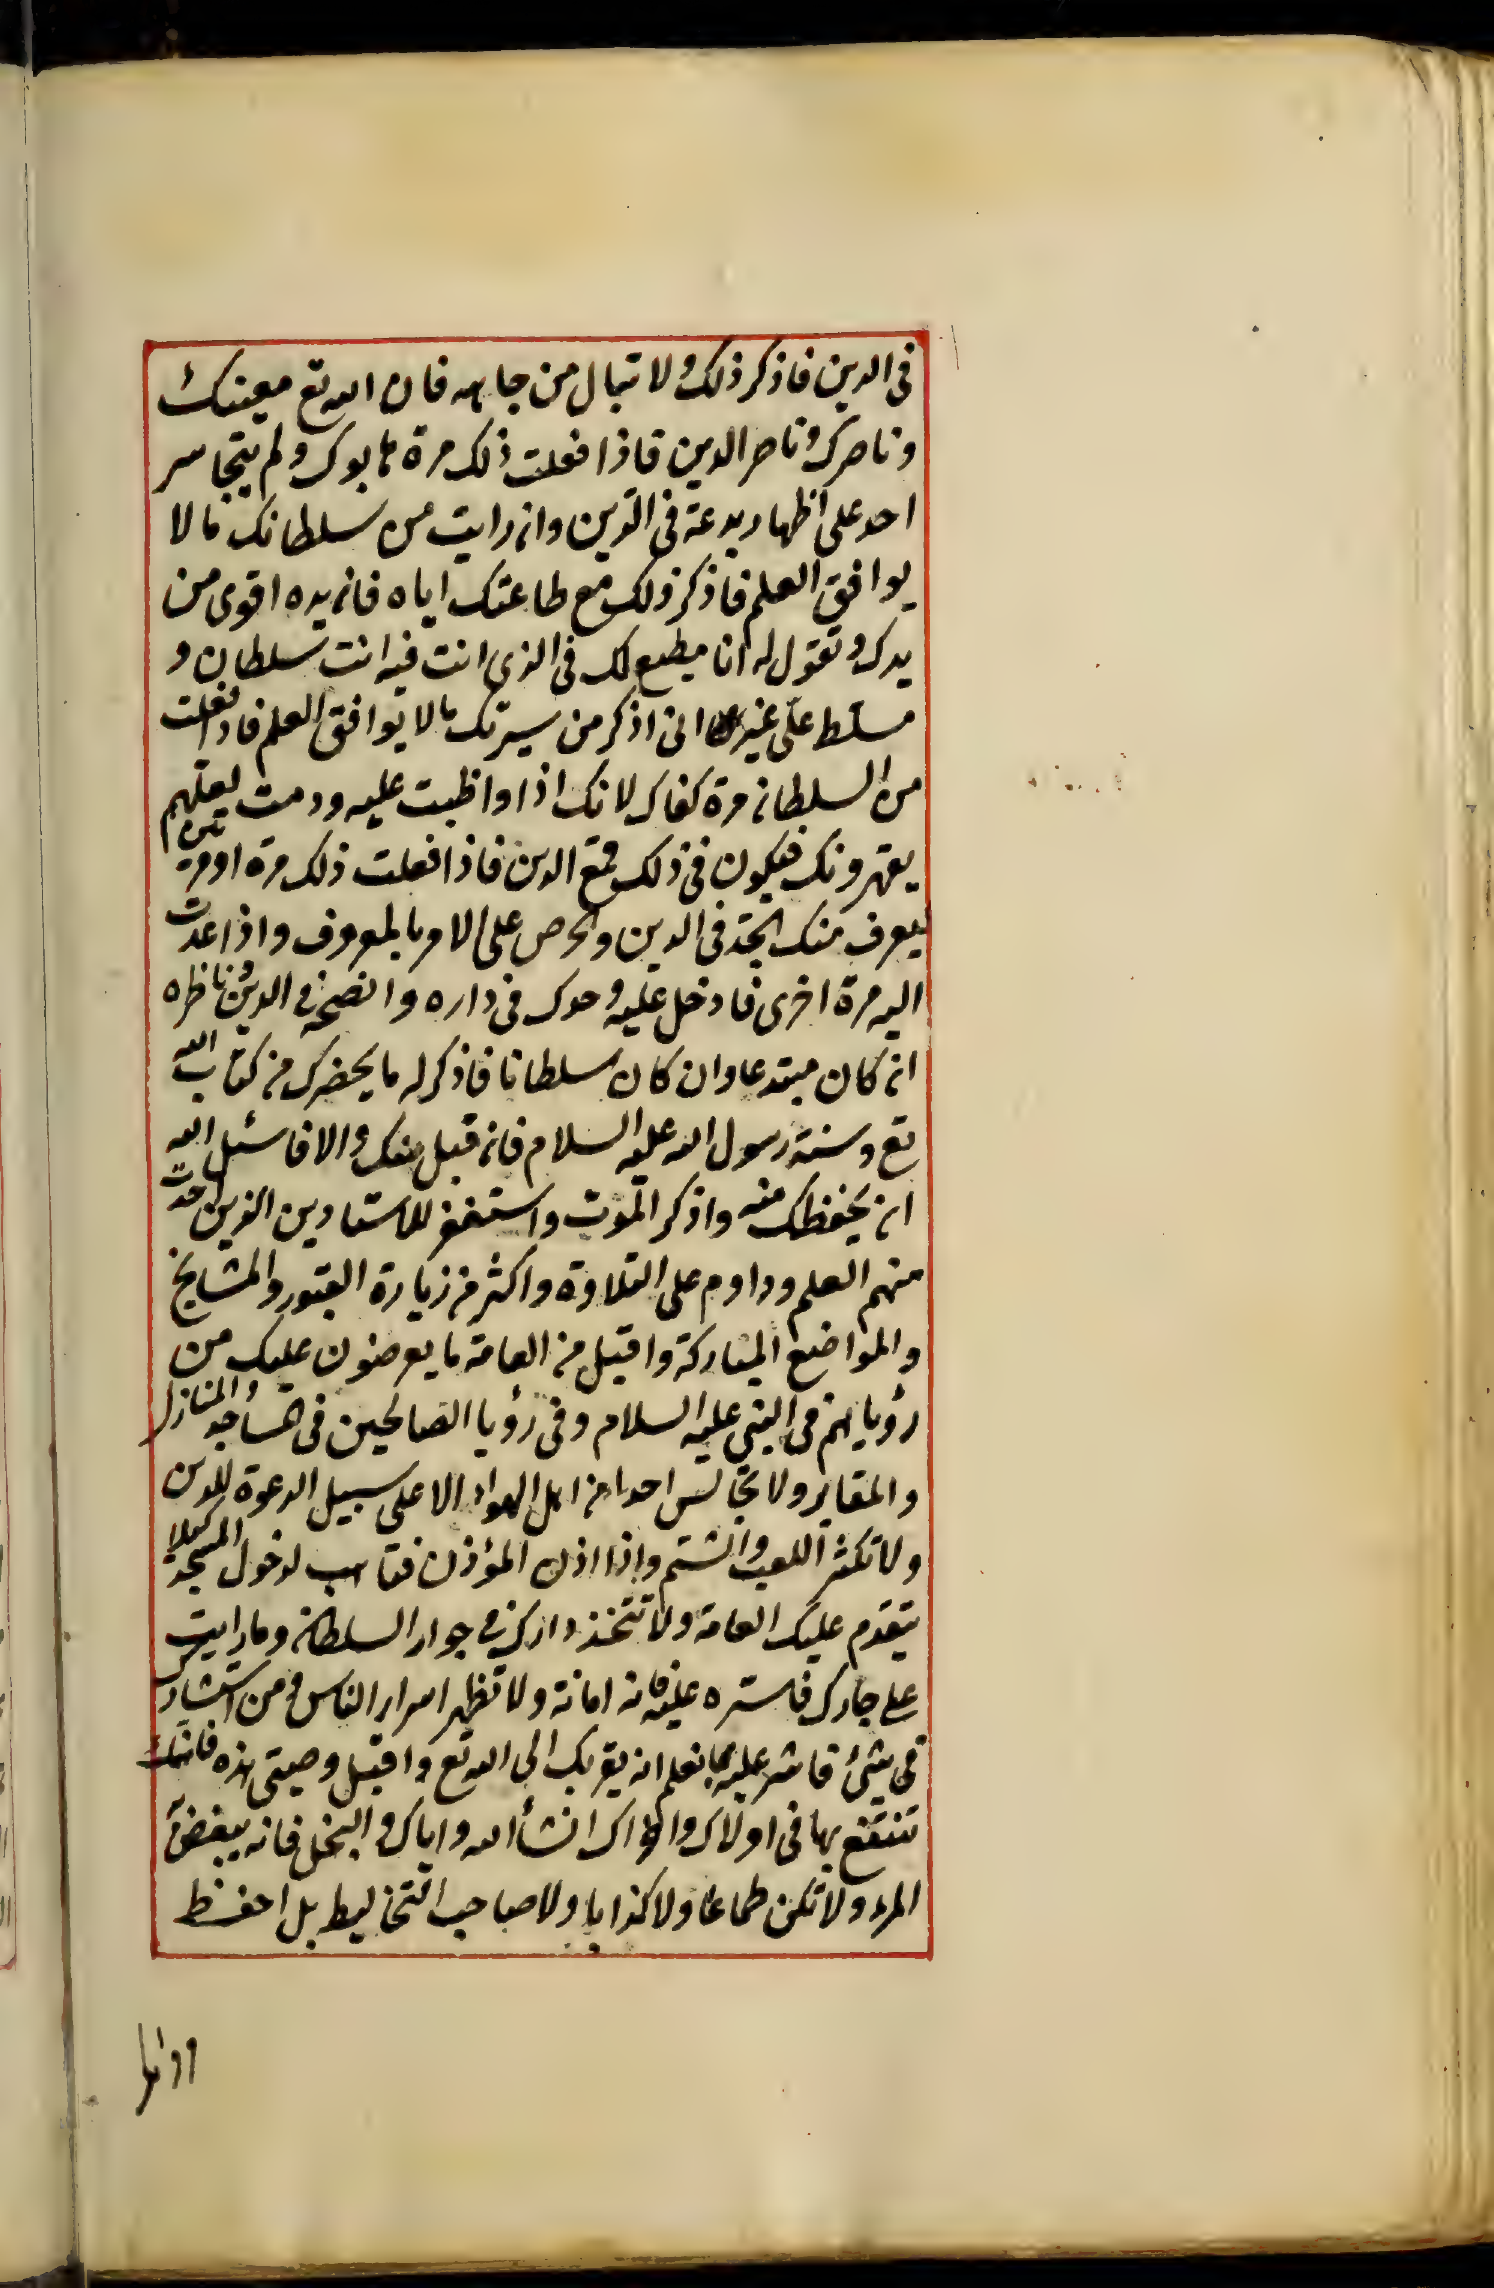 فى الدين فاذكر ذلك ولا تبال من جاهه فان الله تع معينك
وناصرك وناصر الدين فاذا فعلت ذلك مرة هابوك ولم يتجاسر
احد على اظهار بدعة فى الدين وان رايت من سلطانك ما لا
يوافق العلم فاذكر ذلك مع طاعتك اياه فان يده اقوى من
يدك وتقول له انا مطيع لك فى الذى انت فيه انت سلطان و
مسلط علّى غير انى اذكر من سيرتك ما لا يوافق العلم فاذا فعلت
من السلطان مرة كفاك لانك اذا واظبت عليه ودمت لعلهم
يقهرونك فيكون فى ذلك قمع الدين فاذا فعلت ذلك مرة او مرتين
ليعرف منك الجد فى الدين والحرص على الامر بالمعروف واذا عدت
اليه مرة اخرى فادخل عليه وحدك فى داره وانصحه فى الدين وناظره
ان كان مبتدعا وان كان سلطانا فاذكر له ما يحضرك من كتاب الله
تع وسنة رسول الله عليه السلام فان قبل منك والا فاسئل الله
ان يحفظك منه واذكر الموت واستغفر للاستادين الذين اخذت
منهم العلم وداوم على التلاوة واكثر من زيارة القبور والمشايخ
والمواضع المباركة واقبل من العامة ما يعرضون عليك من
رؤياهم فى النبى عليه السلام وفى رؤيا الصالحين فى المساجد والمنازل
والمقابر ولا تجالس احدا من اهل الهواء الا على سبيل الدعوة للدين
ولا تكثر اللعب والشتم واذا اذن المؤذن فتاهب لدخول المسجد كيلا
يتقدم عليك العامة ولا تتخذ دارك فى جوار السلطان وما رايت
على جارك فاستره عليه فانه امانة ولا تظهر اسرار الناس ومن استشارك
فى شئ فاشر عليه بما تعلم انه يقربك الى الله تع واقبل وصيتى هذه فانك
تنتفع بها فى اولاك و انشأ الله واياك والبخل فانه يبغض
المرء ولا تكن طماعا ولا كذابا ولا صاحب التخاليط بل احفظ